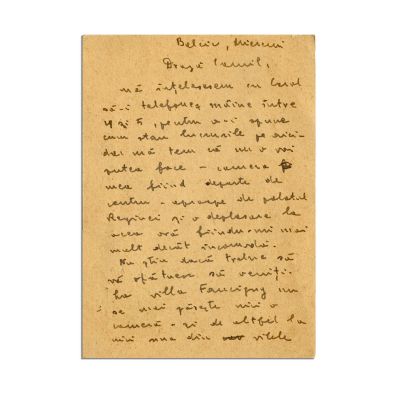 Balcic, Miercuri
Dragă Camil,
mă înțelesesem cu Carol
să-i telefonez mâine între
4 și 5, pentru a-i spune
cum stau lucrurile pe aici -
dar mă tem că nu o voi
putea face - camera
mea fiind departe de
centru - aproape de palatul
Reginei și o deplasare la
acea oră fiindu-mi mai
mult decât incomodă.
Nu știu dacă trebue să
vă sfătuesc să veniți.
La villa nu
se mai găsește nici o
cameră - și de altfel la
nici una din vilele